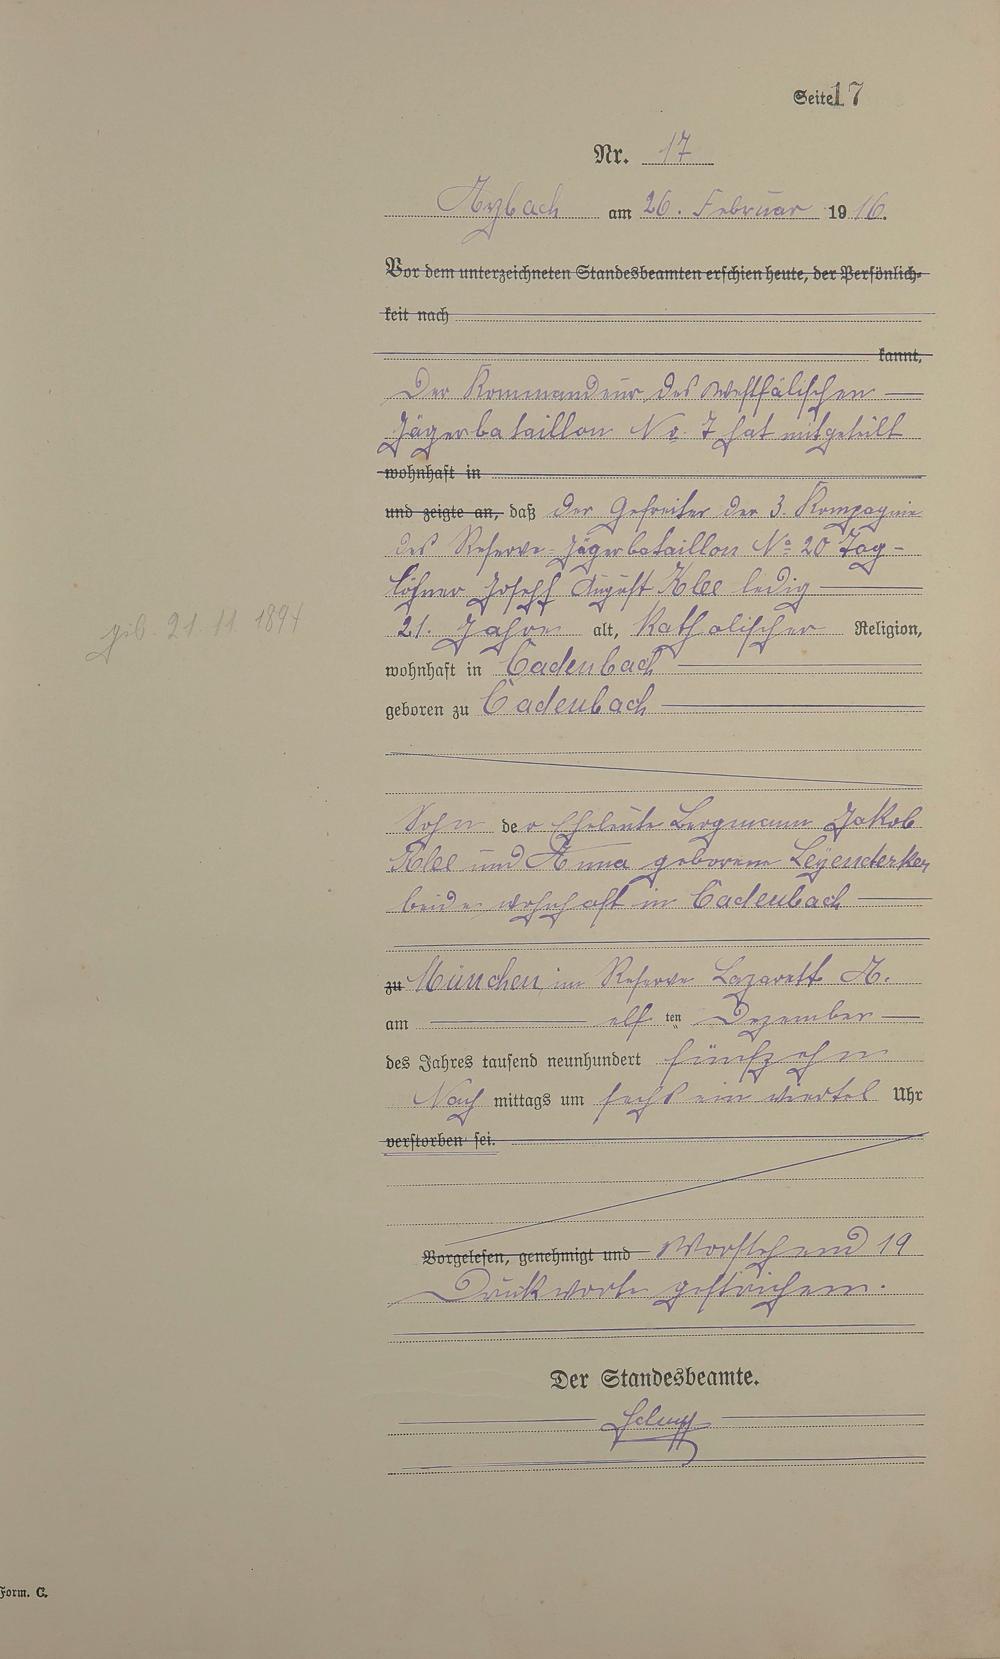 Seite 17
Nr. 17
Arzbach am 26. Februar 1916.
Vor dem unterzeichneten Standesbeamten erschien heute, der Persönlich-
keit nach
kannt,
Der Kommandeur des Westfälischen
Jägerbataillon No. 7 hat mitgeteilt
wohnhaft in
und zeigte an, daß der Gefreiter der 3. Kompagnie
des Reserve-Jägerbataillon No 20 Tag-
löhner Joseff August Klee ledig
geb. 21. 11. 1894
21. Jahre alt, Katholischer Religion,
wohnhaft in Cadenbach
geboren zu Cadenbach
Sohn der Eheleute Bergmann Jakob
Klee und Anna geborene Leyendecker
beide wohnhaft in Cadenbach
zu München im Reserve Lazarett A.
am elf ten Dezember
des Jahres tausend neunhundert fünfzehn
Nach mittags um sechs ein viertel Uhr
verstorben sei.
Vorgelesen, genehmigt und Vorstehend 19
Druckworte gestrichen.
Der Standesbeamte.
Form. C.